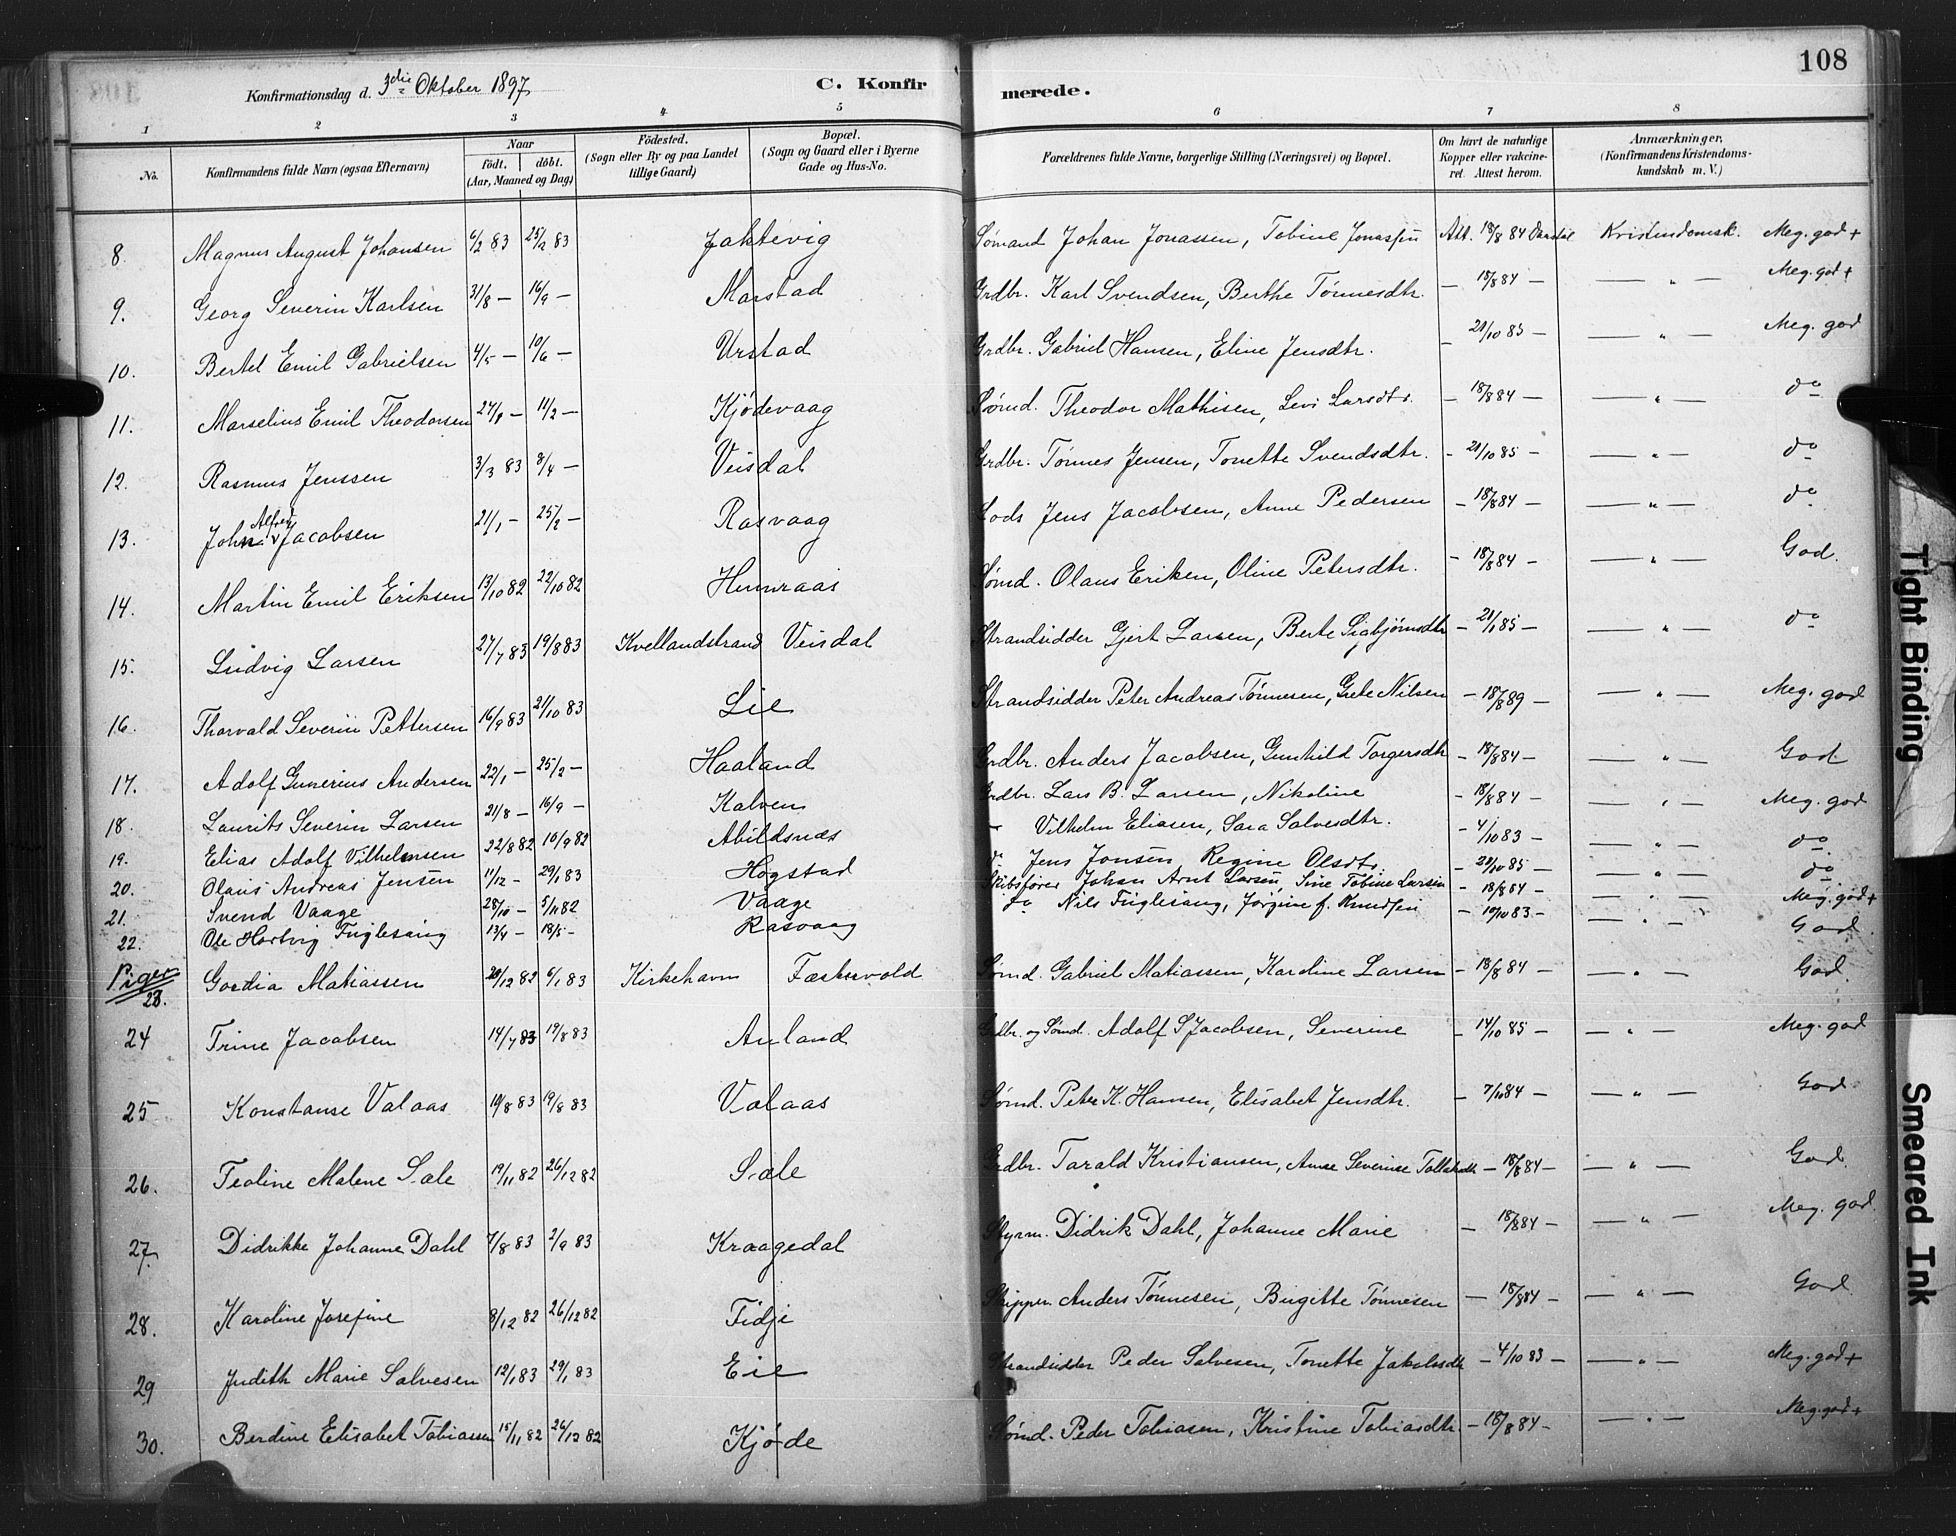 108
Konfirmationsdag d. 3die Oktober 1897
C. Konfirmerede.
1 2 3 4 5 6 7 8
No. Konfirmandens fulde Navn (ogsaa Efternavn) Naar Født. døbt. (Aar, Maaned og Dag) Fødested. (Sogn eller By og paa Landet tillige Gaard) Bopæl. (Sogn og Gaard eller i Byerne Gade og Hus-No. Forældrenes fulde Navne, borgerlige Stilling (Næringsvei) og Bopæl. Om havt de naturlige Kopper eller vakcineret. Attest herom. Anmærkninger, (Konfirmandens Kristendomskundskab m. V.)
8. Magnus August Johansen 6/2 83 25/2 83 Jahtevig Sømand Johan Jonassen, Tobine Jonassen Att. 18/8 84 Kristendomsk. Meg. god +
9. Georg Severin Karlsen 31/8 — 16/9 — Marstad Grdbr. Karl Svendsen, Berthe Tønnesdtr. — 18/8 84 — — " — Meg. god +
10. Bertel Emil Gabrielsen 4/5 — 10/6 — Urstad Grdbr. Gabriel Hansen, Eline Jensdtr. — 21/10 85 — — " — Meg. god
11. Marselius Emil Theodorsen — 11/2 — Kjødevaag Sømd. Theodor Mathisen, Levi Larsdtr. — 18/8 84 — — " — do
12. Rasmus Jenssen 3/3 83 8/4 — Veisdal Grdbr. Tønnes Jensen, Tonette Svendsdtr. — 21/10 85 — — " — do
13. John Alfred Jacobsen 21/1 — 25/2 — Rasvaag Lods Jens Jacobsen, Anne Pedersen — 18/8 84 — — " — do
14. Martin Emil Eriksen 13/10 82 22/10 82 Hunraas Sømd. Olaus Eriken, Oline Petersdtr. — 18/8 84 — — " — God.
15. Ludvig Larsen 27/7 83 19/8 83 Kvellandstrand Veisdal Strandsidder Gjert Larsen, Berte Sigbjørnsdtr — 85 — — " — do
16. Thorvald Severin Pettersen 16/9 83 21/10 83 Lie Strandsidder Peter Andreas Tønnesen, Grete Nilsen — 18/8 89 — — " — Meg. god
17. Adolf Gunerius Andersen 22/1 — 25/2 — Haaland Grdbr. Anders Jacobsen, Gunhild Torgersdtr — 18/8 84 — — " — God
18. Laurits Severin Larsen 21/8 — 16/9 — Kalven Grdbr. Lars B. Larsen, Nikoline — 18/8 84 — — " — Meg. god
19. Elias Adolf Vilhelmsen 22/8 82 10/9 82 Abildsnæs — Vilhelm Eliasen, Sara Salvesdtr. — 4/10 83 — — " — do
20. Olaus Andreas Jensen 11/12 — 29/1 83 Høgstad Jens Jonsen, Regine Olsdtr. — 21/10 85 — — " — do
21. Svend Vaage 28/10 — 5/11 82 Vaage Skibsfører Johan Arnt Larsen, Sine Tobine Larsen — 18/8 84 — — " — Meg. god +
22. Ole Hartvig Fuglesang 13/4 — 18/5 — Rasvaag do Nils Fuglesang, Jørgine f. Knudsen — 19/10 83 — — " — God
Piger
23. Gordia Matiassen 20/12 82 6/1 83 Kirkehavn Faskevold Sømd. Gabriel Matiassen, Karoline Larsen — 18/8 84 — — " — God
24 Trine Jacobsen 14/7 83 19/8 83 Auland Grdbr. og Sømd. Adolf S Jacobsen, Severine — 14/10 85 — — " — Meg. god
25 Konstanse Valaas 19/8 83 19/8 83 Valaas Sømd. Peter K. Hansen, Elisabet Jensdtr. — 7/10 84 — — " — God
26. Teoline Malene Sæle 19/11 82 26/12 82 Sæle Grdbr. Tarald Kristiansen, Anne Severine — 18/8 84 — — " — God
27. Didrikke Johanne Dahl 7/8 83 2/9 83 Kraagedal Styrm. Didrik Dahl, Johanne Marie — 18/8 84 — — " — Meg. god
28. Karoline Josefine 8/12 82 26/12 82 Fidje Skipper Anders Tønnesen, Birgitte Tønnesen — 18/8 84 — — " — God
29 Judith Marie Salvesen 12/1 83 29/1 83 Eie Strandsidder Peder Salvesen, Tonette Jakobsdtr — 4/10 83 — — " — Meg. god +
30. Berdine Elisabet Tobiassen 15/11 82 26/12 82 Kjøde Sømd. Peder Tobiasen, Kristine Tobiasdtr. — 18/8 84 — — " — Meg. god +
Tight Binding
Smeared Ink